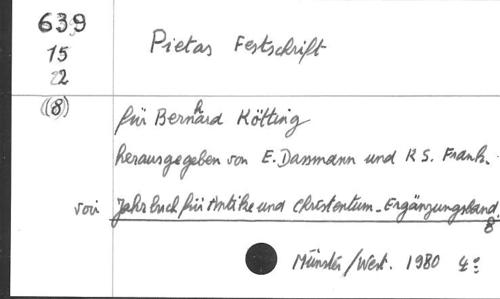 639
15
2
(8)
Pietas Festschrift
für Bernhard Kötting
herausgegeben von E. Dassmann und K S. Frank.
voir Jahrbuch für Antike und Christentum - Ergänzungsband
8
Münster/West. 1980 4°